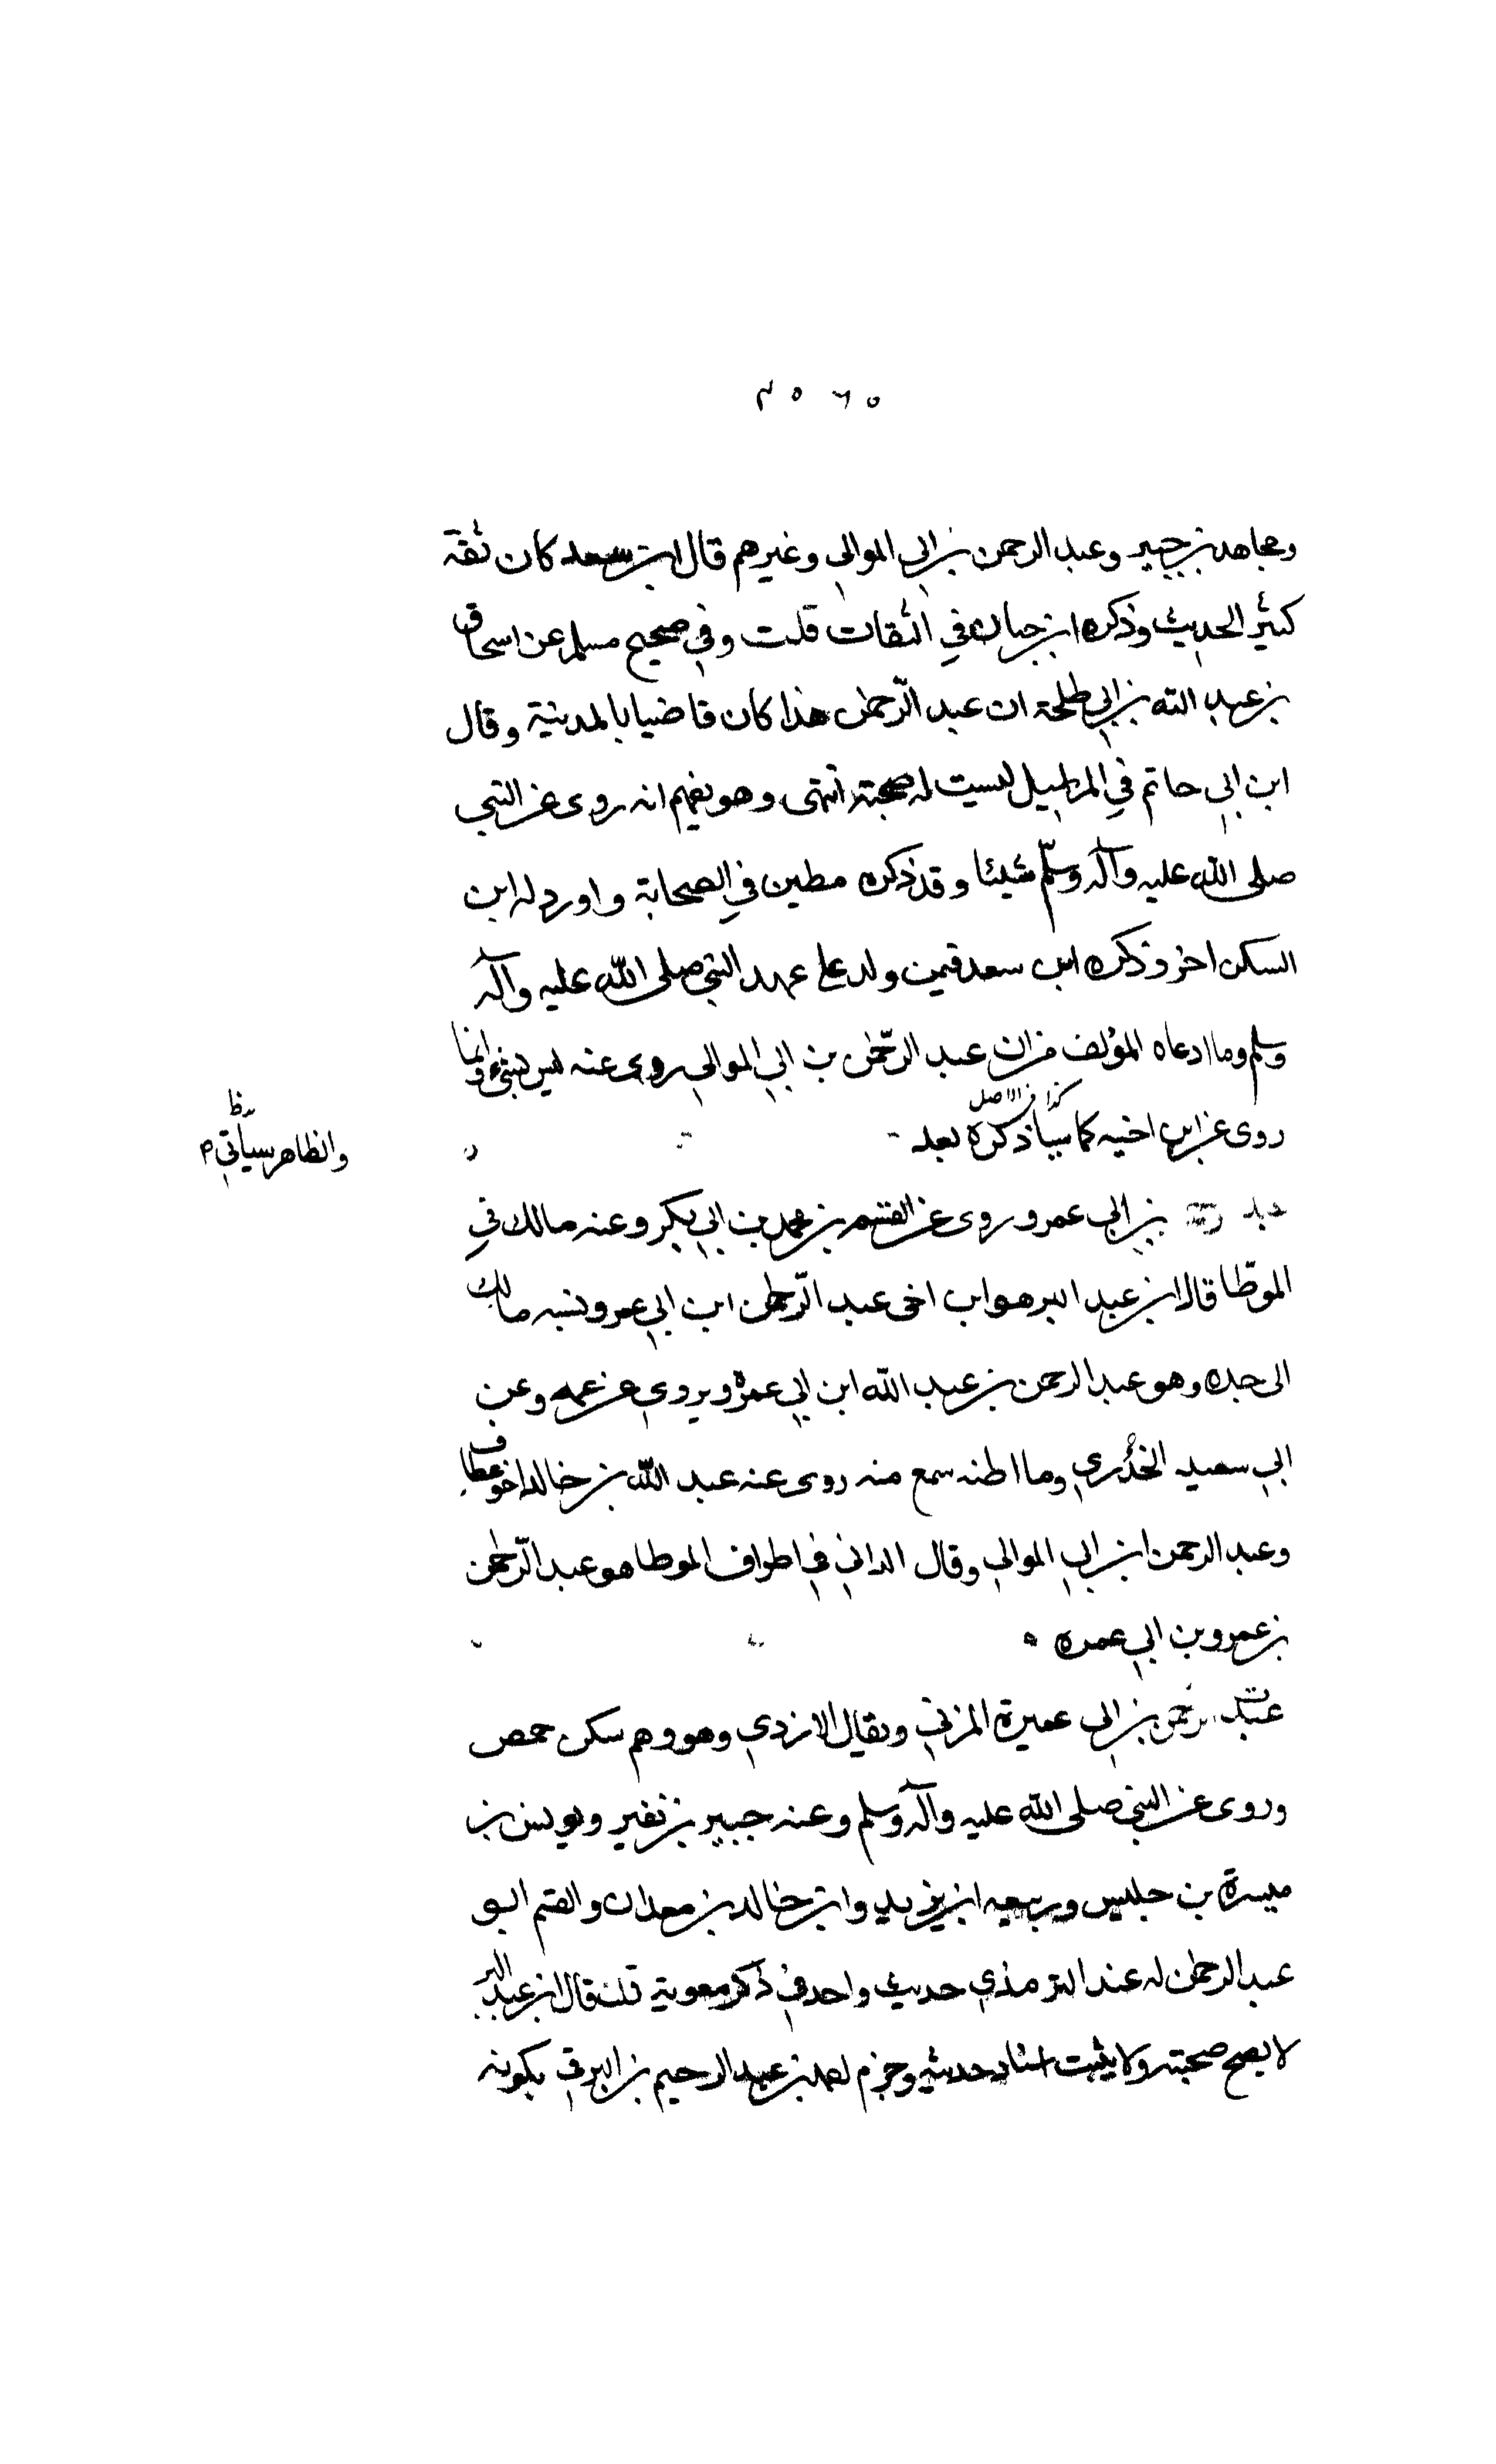 ومجاهد بن جبير وعبد الرحمن بن ابي الموالي وغيرهم قال ابن سعد كان ثقة
كثير الحديث وذكره ابن حبان في الثقات قلت وفي صحيح مسلم عن اسحاق
بن عبد الله بن ابي طلحة ان عبد الرّحمٰن هذا كان قاضيا بالمدينة وقال
ابن ابي حاتم في المراسيل ليست له صحبة انتهى وهو يفهم انه روى عن النبي
صلى الله عليه وآله وسلّم شيئا وقد ذكره مطين في الصحابة واورد له ابن
السكن اخر وذكره ابن سعد فيمن ولد على عهد النبي صلى الله عليه وآله
وسلم وما ادعاه المؤلف من ان عبد الرّحمٰن بن ابي الموالي روى عنه ليس بشيء وانما
كذا في الاصل
روى عن ابن اخيه كما سيا ذكره بعد
والظاهر سيأتي م
عبد بن ابي عمرو روى عن القسم بن محمد بن ابي بكر وعنه مالك في
الموطّا قال ابن عبد البر هو ابن اخى عبد الرّحمٰن ابن ابي عمرو نسبه مالك
الى جده وهو عبد الرحمن بن عبد الله ابن ابي عمرة ويروي عن عمه وعن
ابي سعيد الخُدْري وما اظنه سمع منه روى عنه عبد الله بن خالد اخو عطاف
وعبد الرحمن ابن ابي الموالي وقال الداني في اطراف الموطا هو عبد الرّحمٰن
بن عمرو بن ابي عمره
عبد الرحمن بن ابي عميرة المزني ويقال الازدي وهو وهم سكن حمص
وروى عن النبي صلى الله عليه وآله وسلم وعنه جبير بن نفير ويونس بن
ميسرة بن حلبس وربيعه ابن يزيد وابن خالد بن معدان والقسم ابو
عبد الرحمٰن له عند الترمذي حديث واحد في ذكر معوية قلت قال ابن عبد البر
لا يصح صحبته ولا يثبت اسناد حديثه وجزم بن عبد الرحيم بن البرقي بكونه